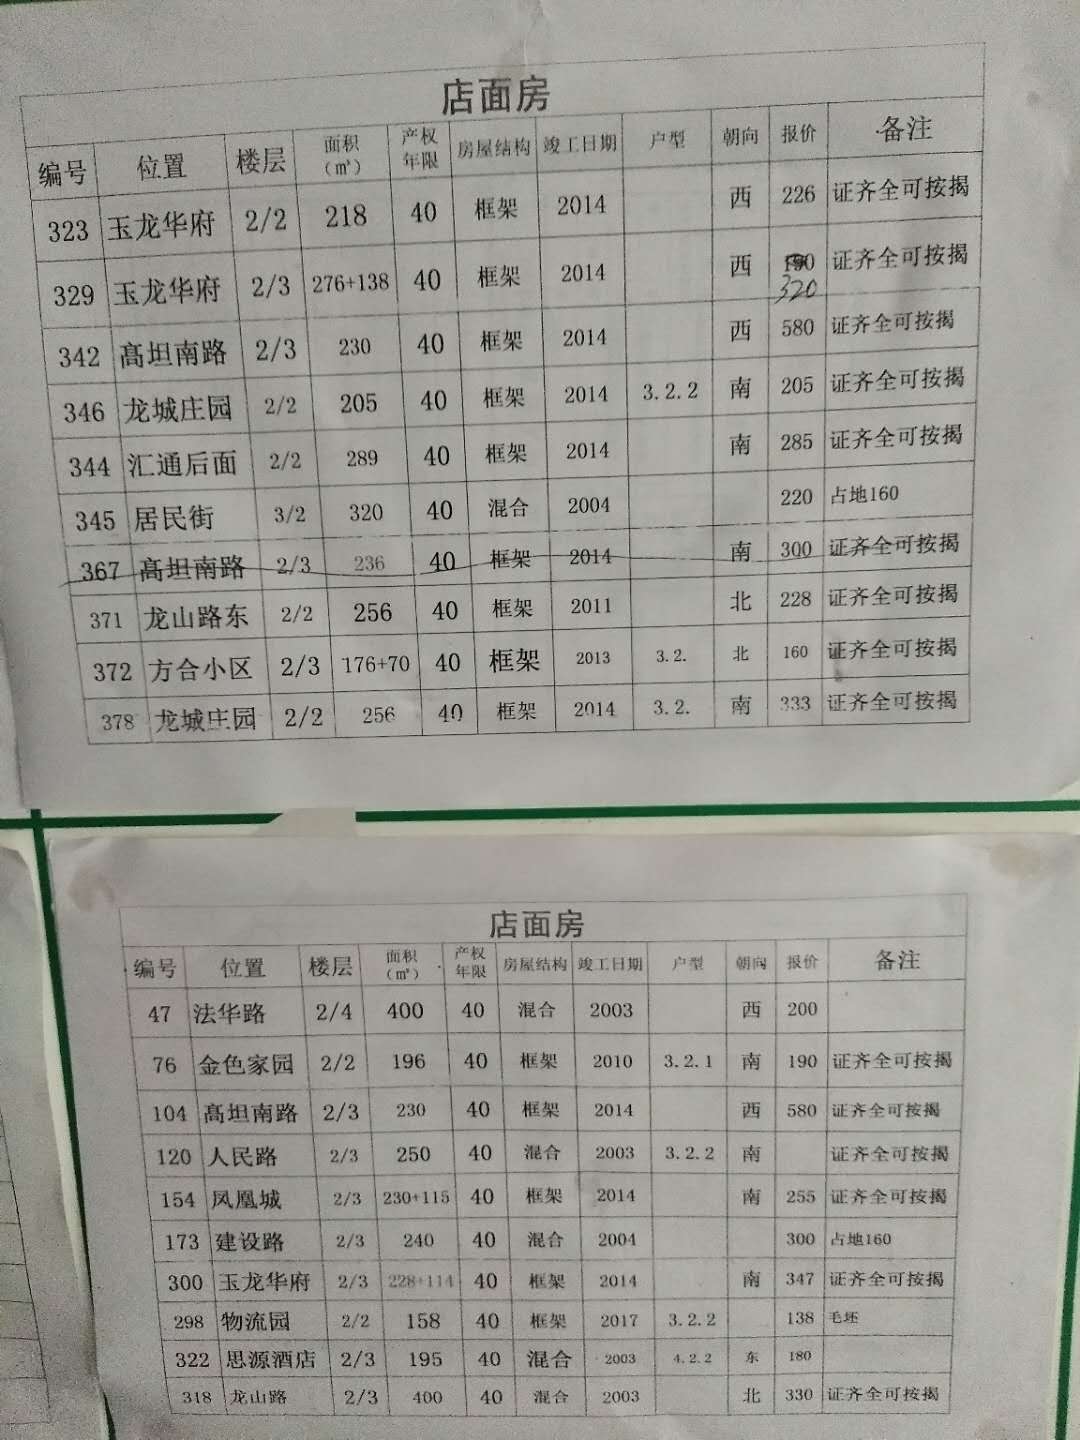 店面房
编号 位置 楼层 面积(㎡) 产权年限 房屋结构 竣工日期 户型 朝向 报价 备注
323 玉龙华府 2/2 218 40 框架 2014 西 226 证齐全可按揭
329 玉龙华府 2/3 276+138 40 框架 2014 西 320 证齐全可按揭
342 高坦南路 2/3 230 40 框架 2014 西 580 证齐全可按揭
346 龙城庄园 2/2 205 40 框架 2014 3.2.2 南 205 证齐全可按揭
344 汇通后面 2/2 289 40 框架 2014 南 285 证齐全可按揭
345 居民街 3/2 320 40 混合 2004 220 占地160
367 高坦南路 2/3 236 40 框架 2014 南 300 证齐全可按揭
371 龙山路东 2/2 256 40 框架 2011 北 228 证齐全可按揭
372 方合小区 2/3 176+70 40 框架 2013 3.2. 北 160 证齐全可按揭
378 龙城庄园 2/2 256 40 框架 2014 3.2. 南 333 证齐全可按揭
店面房
编号 位置 楼层 面积(㎡) 产权年限 房屋结构 竣工日期 户型 朝向 报价 备注
47 法华路 2/4 400 40 混合 2003 西 200
76 金色家园 2/2 196 40 框架 2010 3.2.1 南 190 证齐全可按揭
104 高坦南路 2/3 230 40 框架 2014 西 580 证齐全可按揭
120 人民路 2/3 250 40 混合 2003 3.2.2 南 证齐全可按揭
154 凤凰城 2/3 230+115 40 框架 2014 南 255 证齐全可按揭
173 建设路 2/3 240 40 混合 2004 300 占地160
300 玉龙华府 2/3 228+114 40 框架 2014 南 347 证齐全可按揭
298 物流园 2/2 158 40 框架 2017 3.2.2 138 毛坯
322 思源酒店 2/3 195 40 混合 2003 4.2.2 东 180
318 龙山路 2/3 400 40 混合 2003 北 330 证齐全可按揭